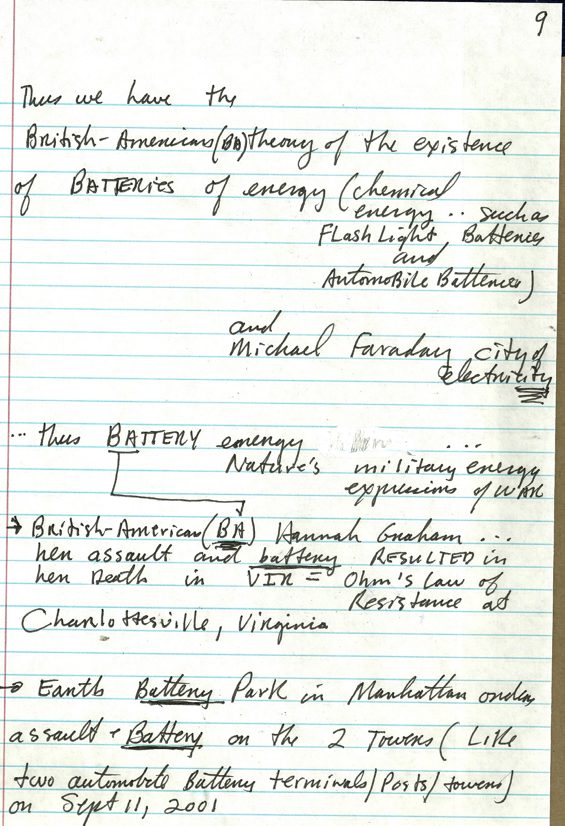 9
Thus we have the
British-Americans(BA) theory of the existence
of BATTERIES of energy (chemical
energy .. such as
FlashLight, Batteries
and
AutomoBile Batteries)
and
Michael Faraday city of
electricity
... thus BATTERY energy ...
Nature's military energy
expressions of WAR
→ British-American(BA) Hannah Graham ...
her assault and battery RESULTED in
her Death in VIR = Ohm's Law of
Resistance at
Charlottesville, Virginia
→ Earth Battery Park in Manhattan order
assault + Battery on the 2 Towers ( Like
two automobile Battery terminals/Posts/towers)
on Sept 11, 2001